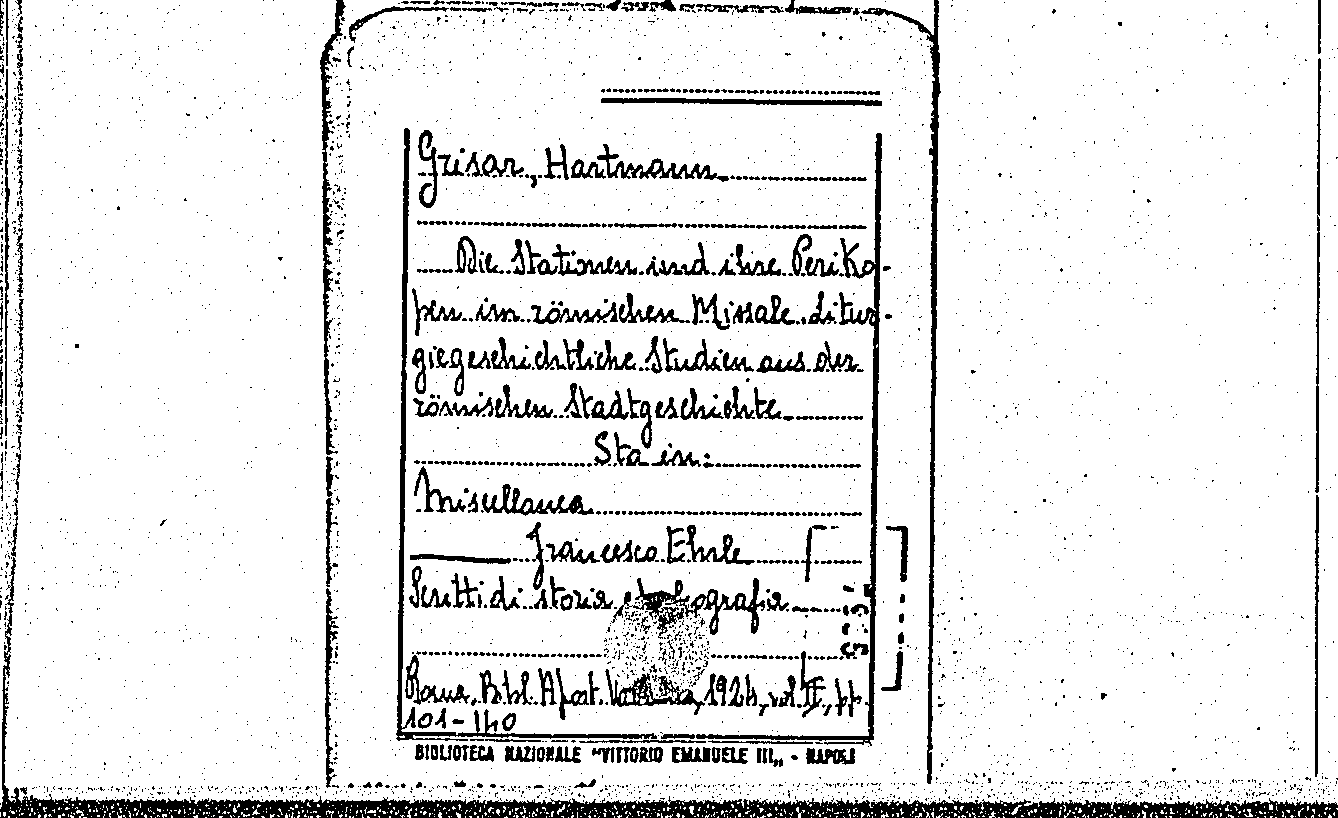 Grisar, Hartmann
Die Stationen und ihre Periko-
pen im römischen Missale. Litur-
giegeschichtliche Studien aus der
römischen Stadtgeschichte
Sta in:
Miscellanea
Francesco Ehrle
Scritti di storia e
Roma, Bibl. Apost. Vaticana, 1924, vol. II, pp.
101-140
BIBLIOTECA NAZIONALE "VITTORIO EMANUELE III„ - NAPOLI